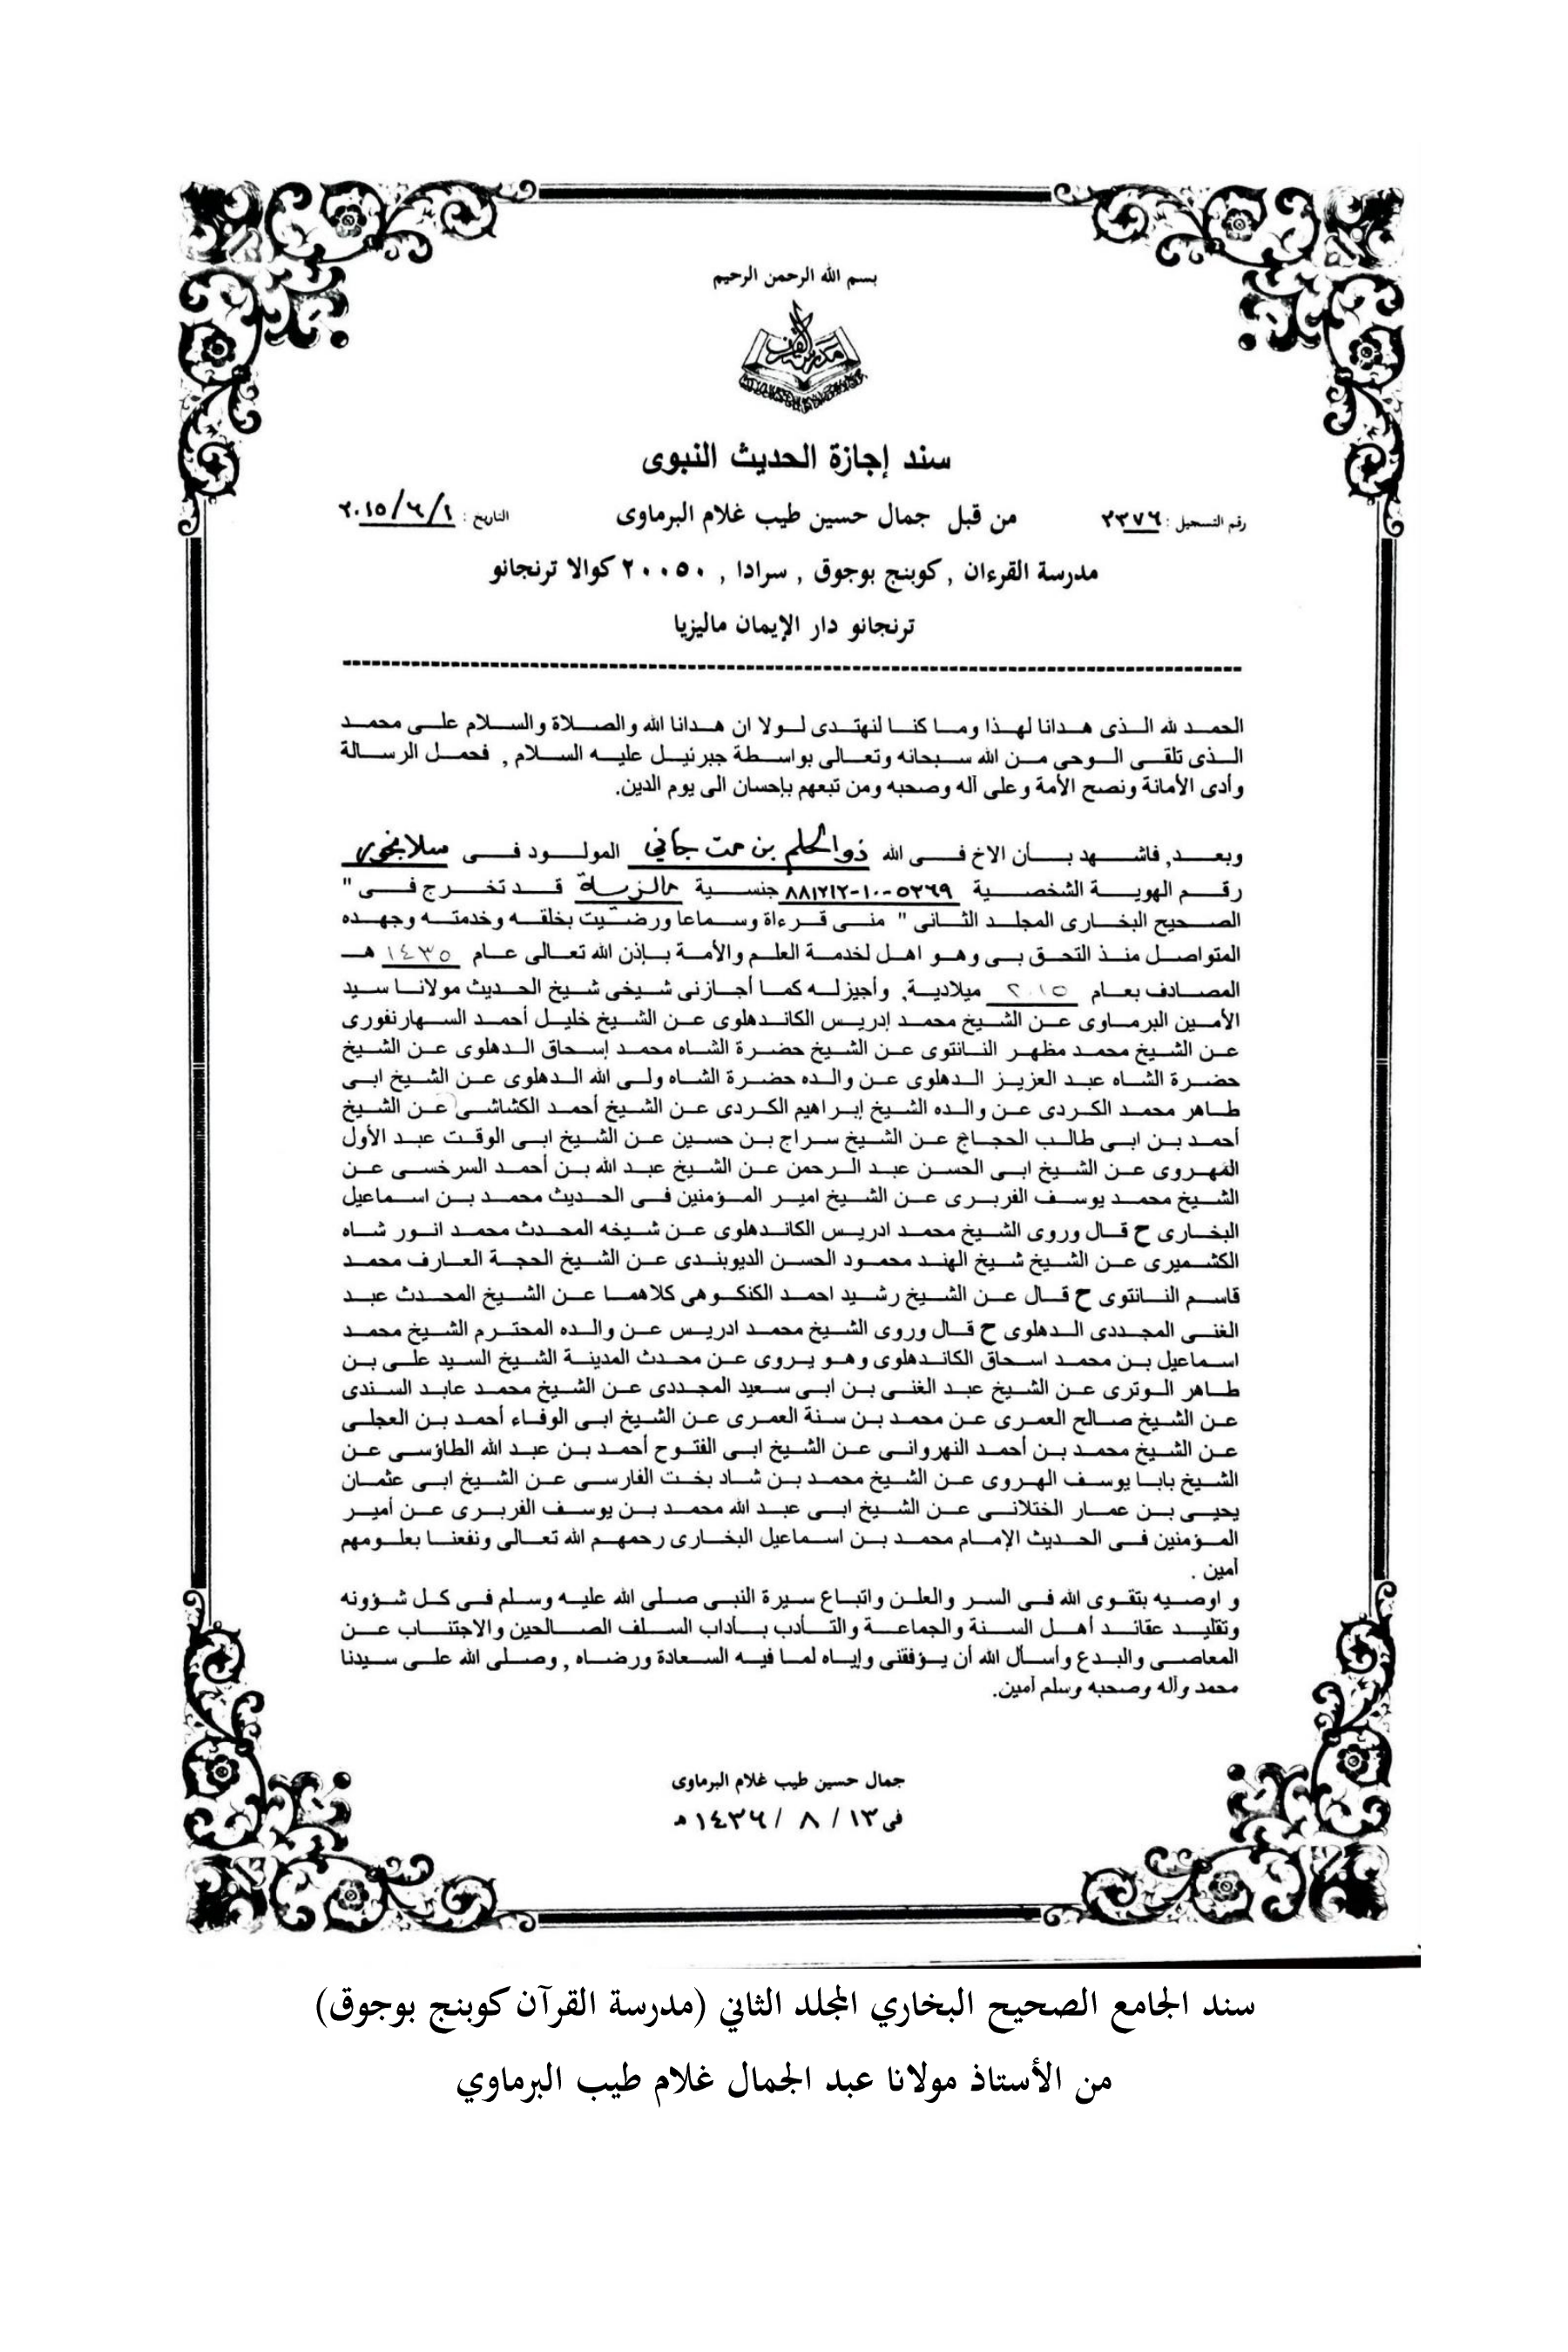 بسم الله الرحمن الرحيم
سند إجازة الحديث النبوى
رقم التسجيل : ٢٣٧٦ من قبل جمال حسين طيب غلام البرماوى التاريخ : ٢٠١٥/٦/١
مدرسة القرءان , كوبنج بوجوق , سرادا , ٢٠٠٥٠ كوالا ترنجانو
ترنجانو دار الإيمان ماليزيا
الحمد لله الذى هدانا لهذا وما كنا لنهتدى لولا ان هدانا الله والصلاة والسلام على محمد
الذى تلقى الوحى من الله سبحانه وتعالى بواسطة جبرئيل عليه السلام , فحمل الرسالة
وأدى الأمانة ونصح الأمة وعلى آله وصحبه ومن تبعهم بإحسان الى يوم الدين.
وبعد, فاشهد بأن الاخ فى الله ذوالحلم بن مت جاني المولود فى سلانجور
رقم الهوية الشخصية ٨٨١٢١٢-١٠-٥٢٦٩ جنسية مالزية قد تخرج فى "
الصحيح البخارى المجلد الثانى " منى قرءاة وسماعا ورضيت بخلقه وخدمته وجهده
المتواصل منذ التحق بى وهو اهل لخدمة العلم والأمة بإذن الله تعالى عام ١٤٣٥ هـ
المصادف بعام ٢٠١٥ ميلادية, وأجيز له كما أجازنى شيخى شيخ الحديث مولانا سيد
الأمين البرماوى عن الشيخ محمد إدريس الكاندهلوى عن الشيخ خليل أحمد السهارنفورى
عن الشيخ محمد مظهر النانتوى عن الشيخ حضرة الشاه محمد إسحاق الدهلوى عن الشيخ
حضرة الشاه عبد العزيز الدهلوى عن والده حضرة الشاه ولى الله الدهلوى عن الشيخ ابى
طاهر محمد الكردى عن والده الشيخ إبراهيم الكردى عن الشيخ أحمد الكشاشى عن الشيخ
أحمد بن ابى طالب الحجاج عن الشيخ سراج بن حسين عن الشيخ ابى الوقت عبد الأول
الهروى عن الشيخ ابى الحسن عبد الرحمن عن الشيخ عبد الله بن أحمد السرخسى عن
الشيخ محمد يوسف الفربرى عن الشيخ امير المؤمنين فى الحديث محمد بن اسماعيل
البخارى ح قال وروى الشيخ محمد ادريس الكاندهلوى عن شيخه المحدث محمد انور شاه
الكشميرى عن الشيخ شيخ الهند محمود الحسن الديوبندى عن الشيخ الحجة العارف محمد
قاسم النانتوى ح قال عن الشيخ رشيد احمد الكنكوهى كلاهما عن الشيخ المحدث عبد
الغنى المجددى الدهلوى ح قال وروى الشيخ محمد ادريس عن والده المحترم الشيخ محمد
اسماعيل بن محمد اسحاق الكاندهلوى وهو يروى عن محدث المدينة الشيخ السيد على بن
طاهر الوترى عن الشيخ عبد الغنى بن ابى سعيد المجددى عن الشيخ محمد عابد السندى
عن الشيخ صالح العمرى عن محمد بن سنة العمرى عن الشيخ ابى الوفاء أحمد بن العجلى
عن الشيخ محمد بن أحمد النهروانى عن الشيخ ابى الفتوح أحمد بن عبد الله الطاؤسى عن
الشيخ بابا يوسف الهروى عن الشيخ محمد بن شاد بخت الفارسى عن الشيخ ابى عثمان
يحيى بن عمار الختلانى عن الشيخ ابى عبد الله محمد بن يوسف الفربرى عن أمير
المؤمنين فى الحديث الإمام محمد بن اسماعيل البخارى رحمهم الله تعالى ونفعنا بعلومهم
أمين .
و اوصيه بتقوى الله فى السر والعلن واتباع سيرة النبى صلى الله عليه وسلم فى كل شؤونه
وتقليد عقائد أهل السنة والجماعة والتأدب بأداب السلف الصالحين والاجتناب عن
المعاصى والبدع وأسأل الله أن يؤفقنى وإياه لما فيه السعادة ورضاه , وصلى الله على سيدنا
محمد وآله وصحبه وسلم أمين.
جمال حسين طيب غلام البرماوى
فى ١٣ / ٨ / ١٤٣٦ هـ
سند الجامع الصحيح البخاري المجلد الثاني (مدرسة القرآن كوبنج بوجوق)
من الأستاذ مولانا عبد الجمال غلام طيب البرماوي